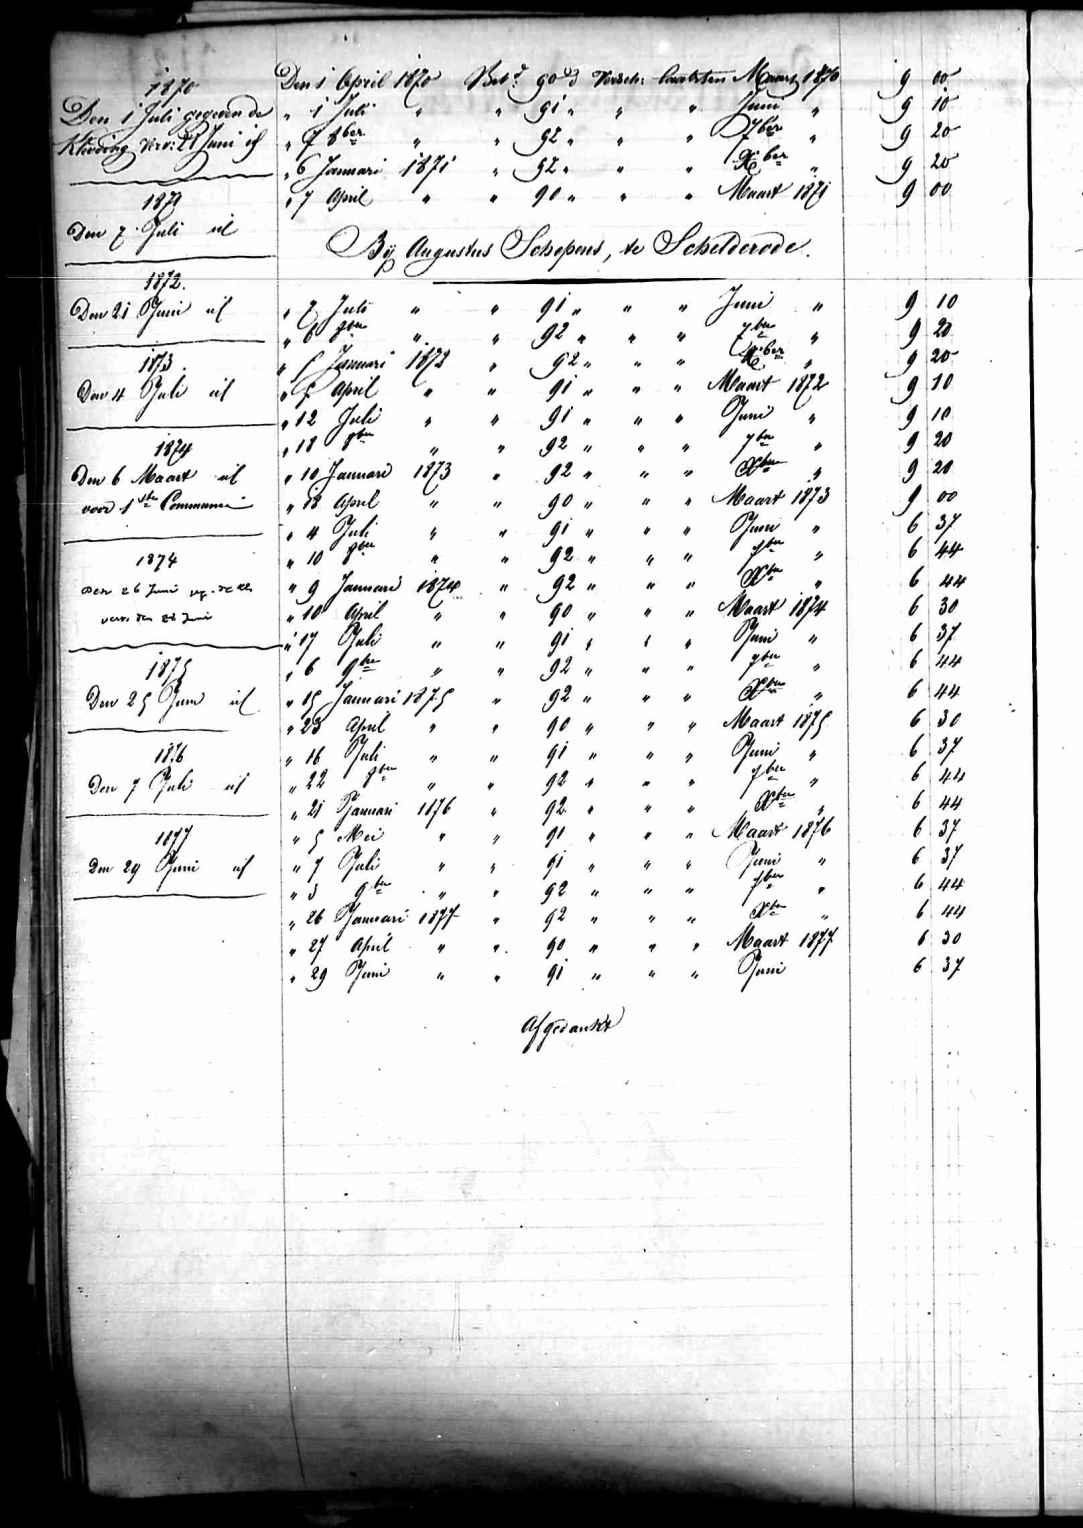 1870
Den 1 Juli gegeven de
Kleeding verv: 21 Juni if
1871
Den 7 Juli id
1872.
Den 21 Juni id
1873.
Den 4 Juli id
1874
Den 6 Maart id
voor 1ste Communie
1874
den 26 Juni
verv. den 21 Juni
1875
Den 25 Juni id
1876
Den 7 Juli id
1877
Den 29 Juni id
Den 1 April 1870 Bet.d 90 d versch: laatsten Maart 1870 9 00
" 1 Juli " " 91 " " " Juni " 9 10
" 7 8ber " " 92 " " " 7ber " 9 20
" 6 Januari 1871 " 92 " " " Xber " 9 20
" 7 April " " 90 " " " Maart 1871 9 00
Bij Augustus Schepens, te Schelderode.
" 7 Juli " " 91 " " " Juni " 9 10
" 6 8ber " " 92 " " " 7ber " 9 20
" 5 Januari 1872 " 92 " " " Xber " 9 20
" 5 April " " 91 " " " Maart 1872 9 10
" 12 Juli " " 91 " " " Juni " 9 10
" 18 8ber " " 92 " " " 7ber " 9 20
" 10 Januari 1873 " 92 " " " Xber " 9 20
" 18 April " " 90 " " " Maart 1873 9 00
" 4 Juli " " 91 " " " Juni " 6 37
" 10 8ber " " 92 " " " 7ber " 6 44
" 9 Januari 1874 " 92 " " " Xber " 6 44
" 10 April " " 90 " " " Maart 1874 6 30
" 17 Juli " " 91 " " " Juni " 6 37
" 6 9ber " " 92 " " " 7ber " 6 44
" 15 Januari 1875 " 92 " " " Xber " 6 44
" 23 April " " 90 " " " Maart 1875 6 30
" 16 Juli " " 91 " " " Juni " 6 37
" 22 8ber " " 92 " " " 7ber " 6 44
" 21 Januari 1876 " 92 " " " Xber " 6 44
" 5 Mei " " 91 " " " Maart 1876 6 37
" 7 Juli " " 91 " " " Juni " 6 37
" 3 9ber " " 92 " " " 7ber " 6 44
" 26 Januari 1877 " 92 " " " Xber " 6 44
" 27 April " " 90 " " " Maart 1877 6 30
" 29 Juni " " 91 " " " Juni 6 37
Afgedankt